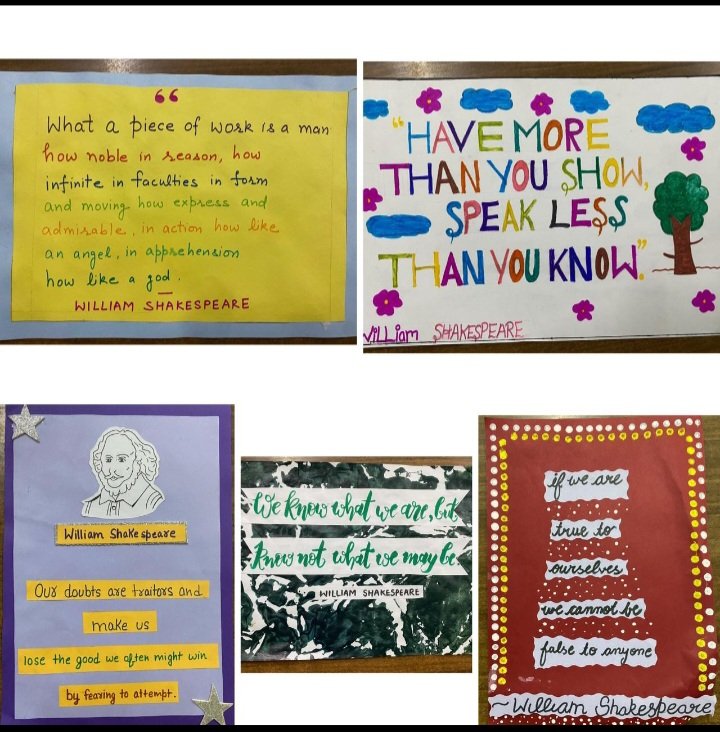 “
What a piece of work is a man
how noble in reason, how
infinite in faculties in form
and moving how express and
admirable, in action how like
an angel, in apprehension
how like a god.
WILLIAM SHAKESPEARE
“HAVE MORE
THAN YOU SHOW,
SPEAK LESS
THAN YOU KNOW.”
William SHAKESPEARE
William Shakespeare
Our doubts are traitors and
make us
lose the good we often might win
by fearing to attempt.
We know what we are, but
know not what we may be
WILLIAM SHAKESPEARE
if we are
true to
ourselves
we cannot be
false to anyone
~William Shakespeare